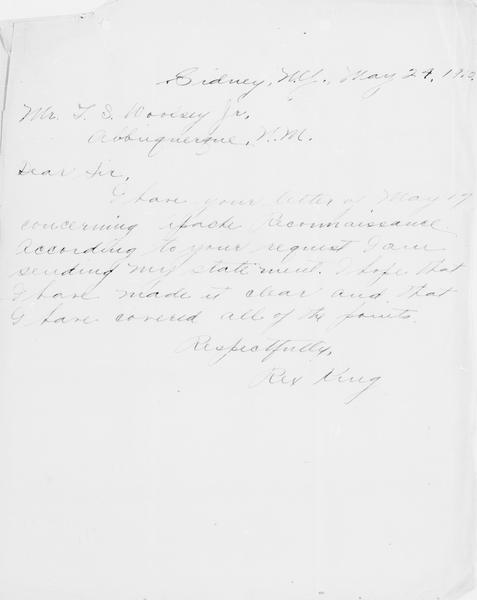 Sidney, N.Y., May 24, 1912
Mr. T. S. Woolsey Jr,
Albuquerque, N.M.
Dear Sir,
I have your letter of May 17
concerning Apache Reconnaissance
According to your request I am
sending my statement. I hope that
I have made it clear and that
I have covered all of the points.
Respectfully,
Rex King